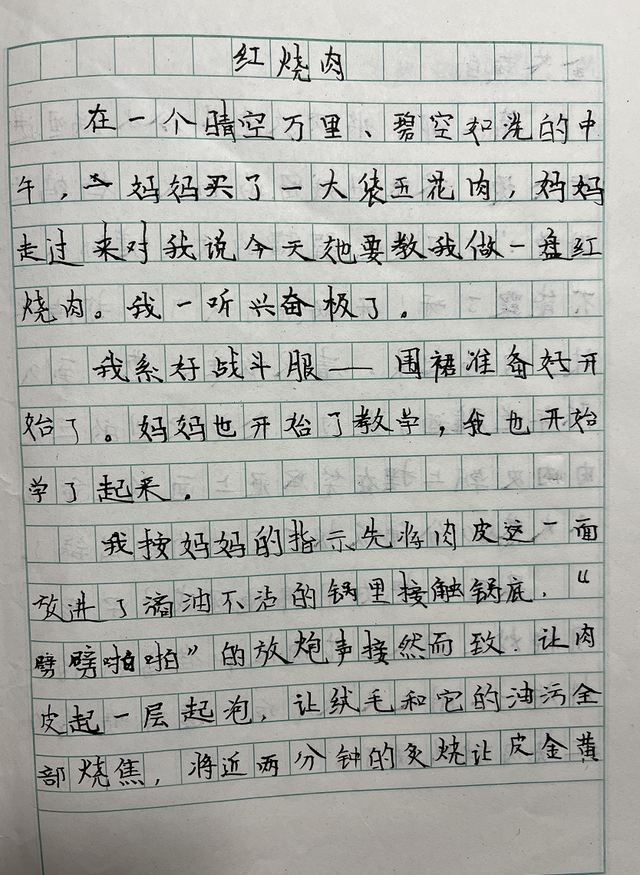 红烧肉
在一个晴空万里、碧空如洗的中
午，妈妈买了一大袋五花肉，妈妈
走过来对我说今天她要教我做一盘红
烧肉。我一听兴奋极了。
我系好战斗服——围裙准备好开
始了。妈妈也开始了教学，我也开始
学了起来。
我按妈妈的指示先将肉皮这一面
放进了滴油不沾的锅里接触锅底．“
劈劈啪啪”的放炮声接然而致．让肉
皮起一层起泡，让绒毛和它的油污全
部烧焦，将近两分钟的炙烧让皮金黄